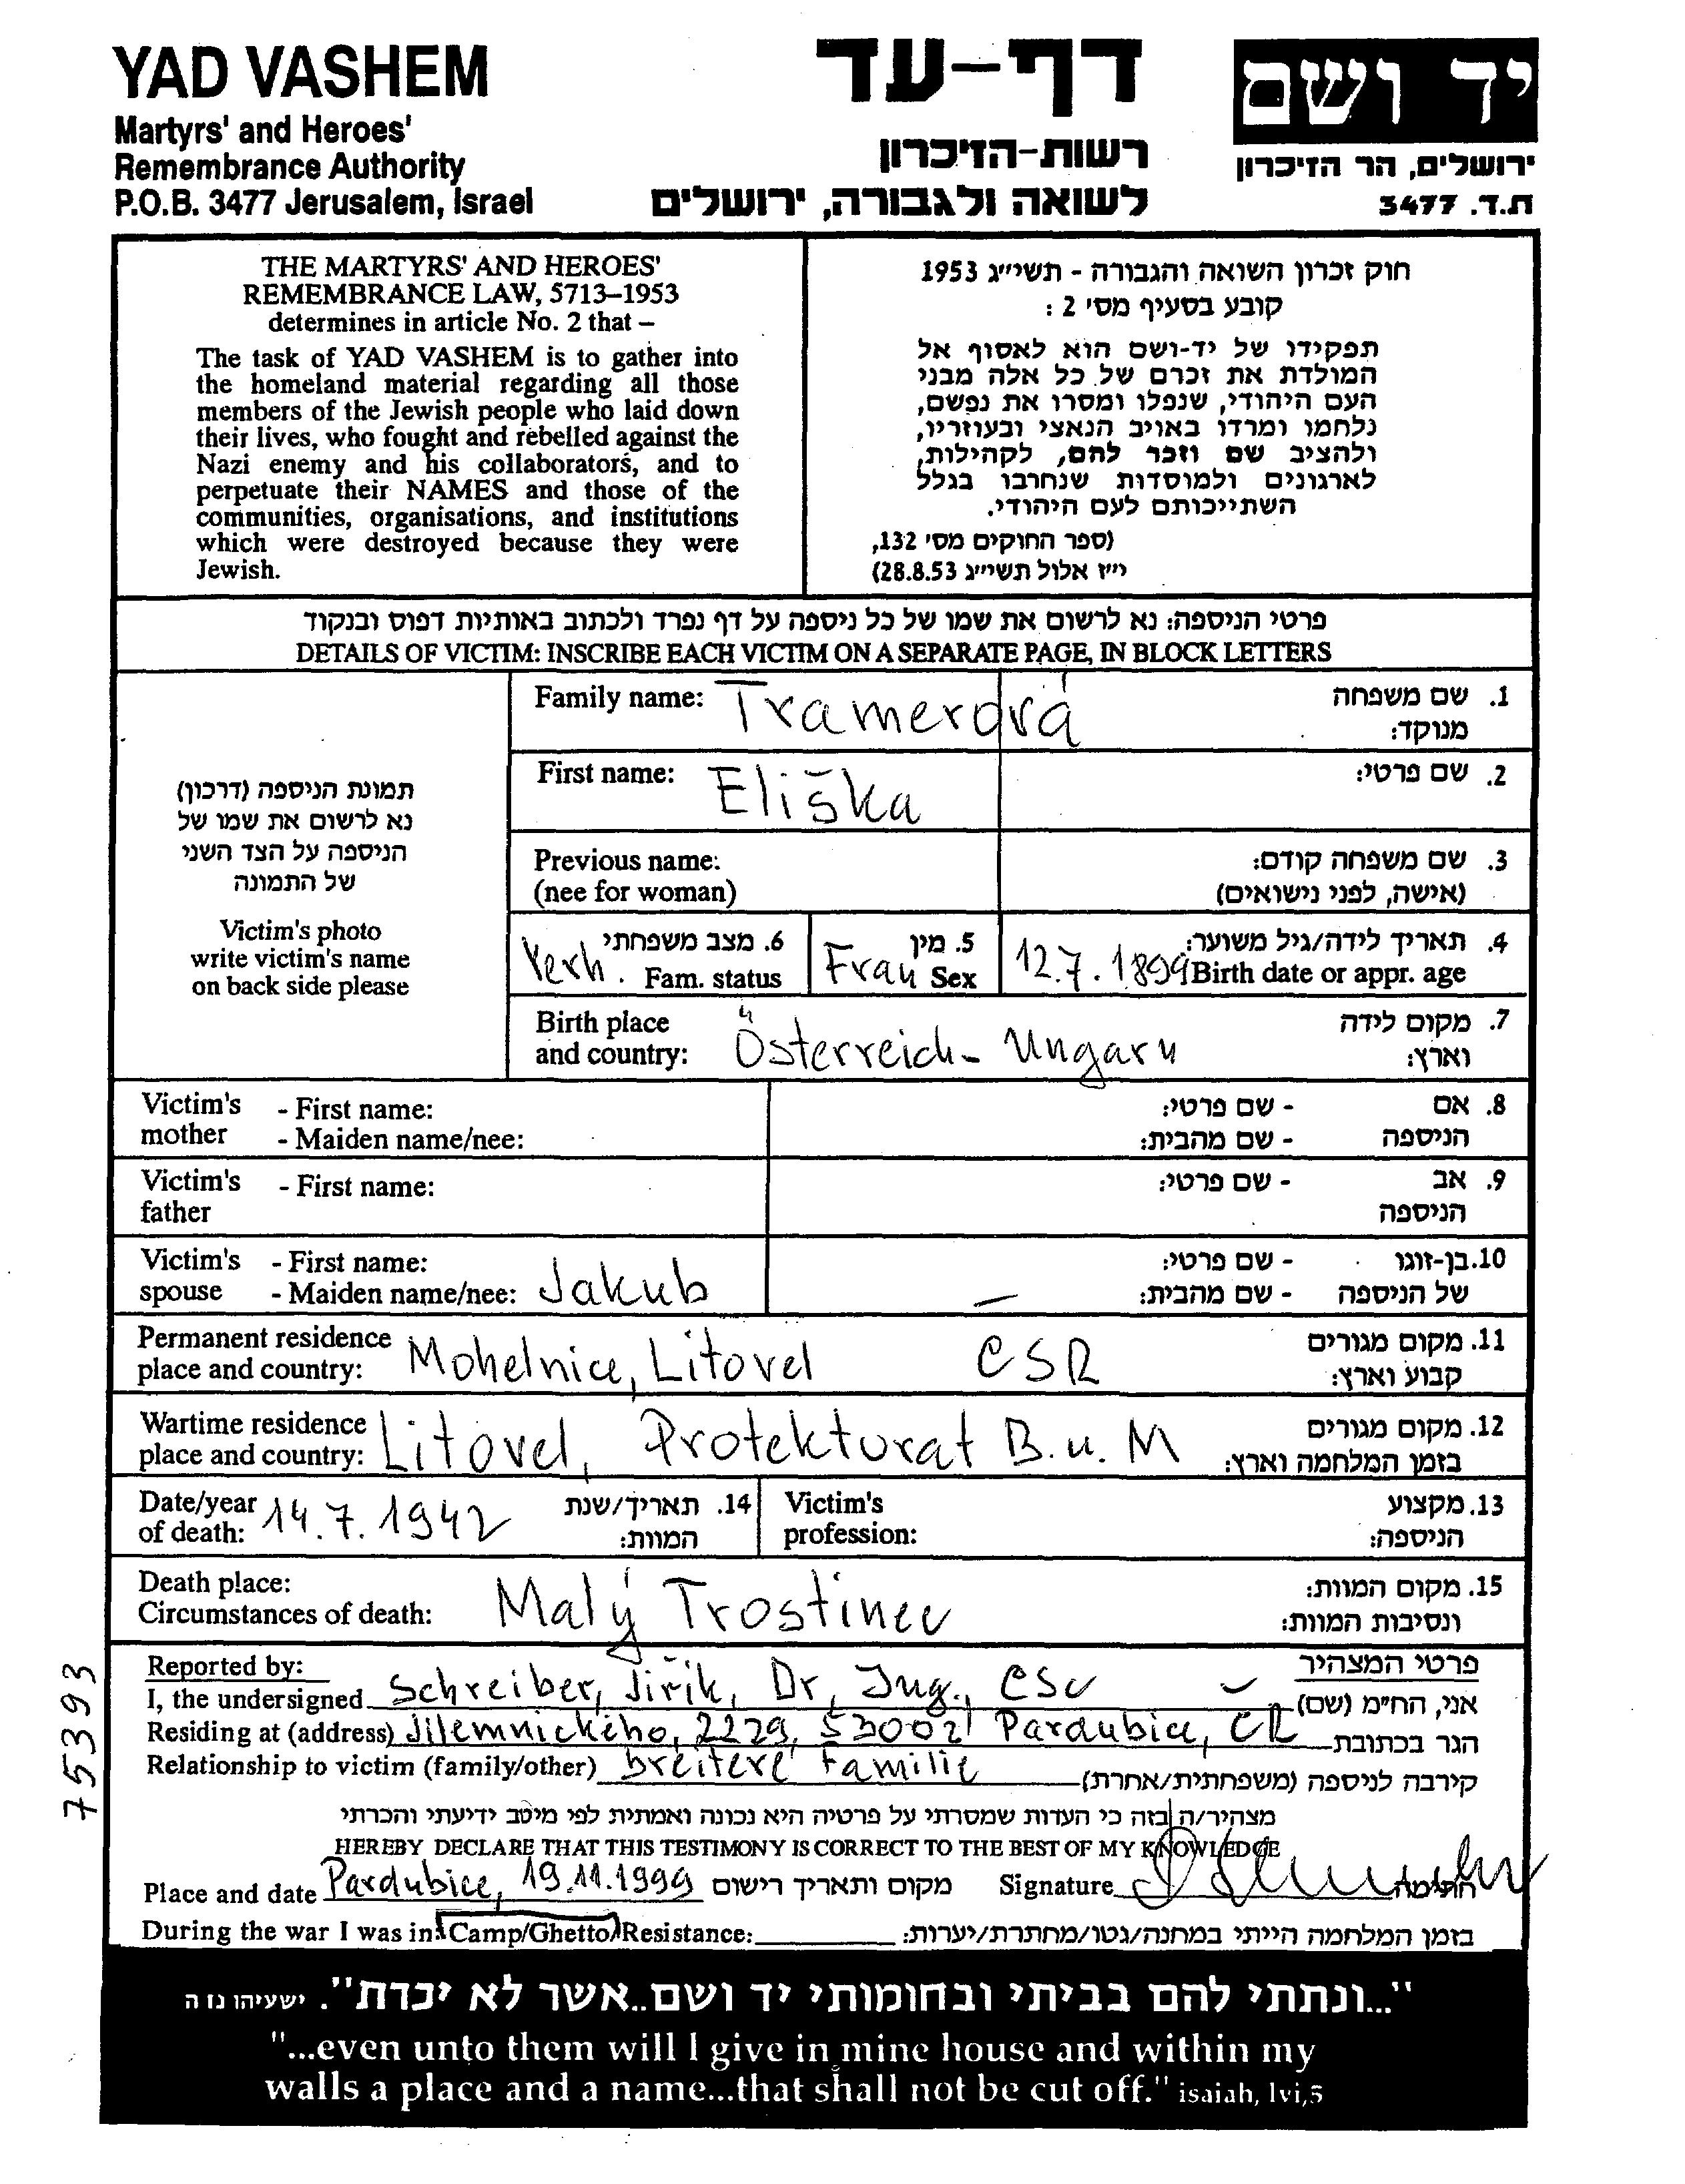 YAD VASHEM
Martyrs' and Heroes'
Remembrance Authority
P.O.B. 3477 Jerusalem, Israel
דף-עד
רשות-הזיכרון
לשואה ולגבורה, ירושלים
יד ושם
ירושלים, הר הזיכרון
ת.ד. 3477
THE MARTYRS' AND HEROES'
REMEMBRANCE LAW, 5713–1953
determines in article No. 2 that –
The task of YAD VASHEM is to gather into
the homeland material regarding all those
members of the Jewish people who laid down
their lives, who fought and rebelled against the
Nazi enemy and his collaborators, and to
perpetuate their NAMES and those of the
communities, organisations, and institutions
which were destroyed because they were
Jewish.
חוק זכרון השואה והגבורה - תשי״ג 1953
קובע בסעיף מס' 2 :
תפקידו של יד-ושם הוא לאסוף אל
המולדת את זכרם של כל אלה מבני
העם היהודי, שנפלו ומסרו את נפשם,
נלחמו ומרדו באויב הנאצי ובעוזריו,
ולהציב שם וזכר להם, לקהילות,
לארגונים ולמוסדות שנחרבו בגלל
השתייכותם לעם היהודי.
(ספר החוקים מס' 132,
י״ז אלול תשי״ג 28.8.53)
פרטי הניספה: נא לרשום את שמו של כל ניספה על דף נפרד ולכתוב באותיות דפוס ובנקוד
DETAILS OF VICTIM: INSCRIBE EACH VICTIM ON A SEPARATE PAGE, IN BLOCK LETTERS
תמונת הניספה (דרכון)
נא לרשום את שמו של
הניספה על הצד השני
של התמונה
Victim's photo
write victim's name
on back side please
Family name: Tramerová 1. שם משפחה
מנוקד:
First name: Eliška 2. שם פרטי:
Previous name: 3. שם משפחה קודם:
(nee for woman) (אישה, לפני נישואים)
Verh. 6. מצב משפחתי Fam. status
Frau 5. מין Sex
12.7.1899 4. תאריך לידה/גיל משוער:
Birth date or appr. age
Birth place 7. מקום לידה
and country: Österreich-Ungarn וארץ:
Victim's - First name: - שם פרטי: 8. אם
mother - Maiden name/nee: - שם מהבית: הניספה
Victim's - First name: - שם פרטי: 9. אב
father הניספה
Victim's - First name: - שם פרטי: 10. בן-זוגו
spouse - Maiden name/nee: Jakub – - שם מהבית: של הניספה
Permanent residence 11. מקום מגורים
place and country: Mohelnice, Litovel ČSR קבוע וארץ:
Wartime residence 12. מקום מגורים
place and country: Litovel, Protekturat B.u.M בזמן המלחמה וארץ:
Date/year 14. תאריך/שנת
of death: 14.7.1942 המוות:
Victim's 13. מקצוע
profession: הניספה:
Death place: 15. מקום המוות:
Circumstances of death: Malý Trostinec ונסיבות המוות:
Reported by: פרטי המצהיר
I, the undersigned Schreiber, Jiřík, Dr, Ing., CSc אני, הח״מ (שם)
Residing at (address) Jilemnického, 2229, 53002 Pardubice, ČR הגר בכתובת
Relationship to victim (family/other) breitere Familie קירבה לניספה (משפחתית/אחרת)
מצהיר/ה בזה כי העדות שמסרתי על פרטיה היא נכונה ואמתית לפי מיטב ידיעתי והכרתי
HEREBY DECLARE THAT THIS TESTIMONY IS CORRECT TO THE BEST OF MY KNOWLEDGE
Place and date Pardubice, 19.11.1999 מקום ותאריך רישום Signature חתימה
During the war I was in: Camp/Ghetto/Resistance: בזמן המלחמה הייתי במחנה/גטו/מחתרת/יערות:
75393
"...ונתתי להם בביתי ובחומותי יד ושם..אשר לא יכרת". ישעיהו נו ה
"...even unto them will I give in mine house and within my
walls a place and a name...that shall not be cut off." isaiah, lvi,5